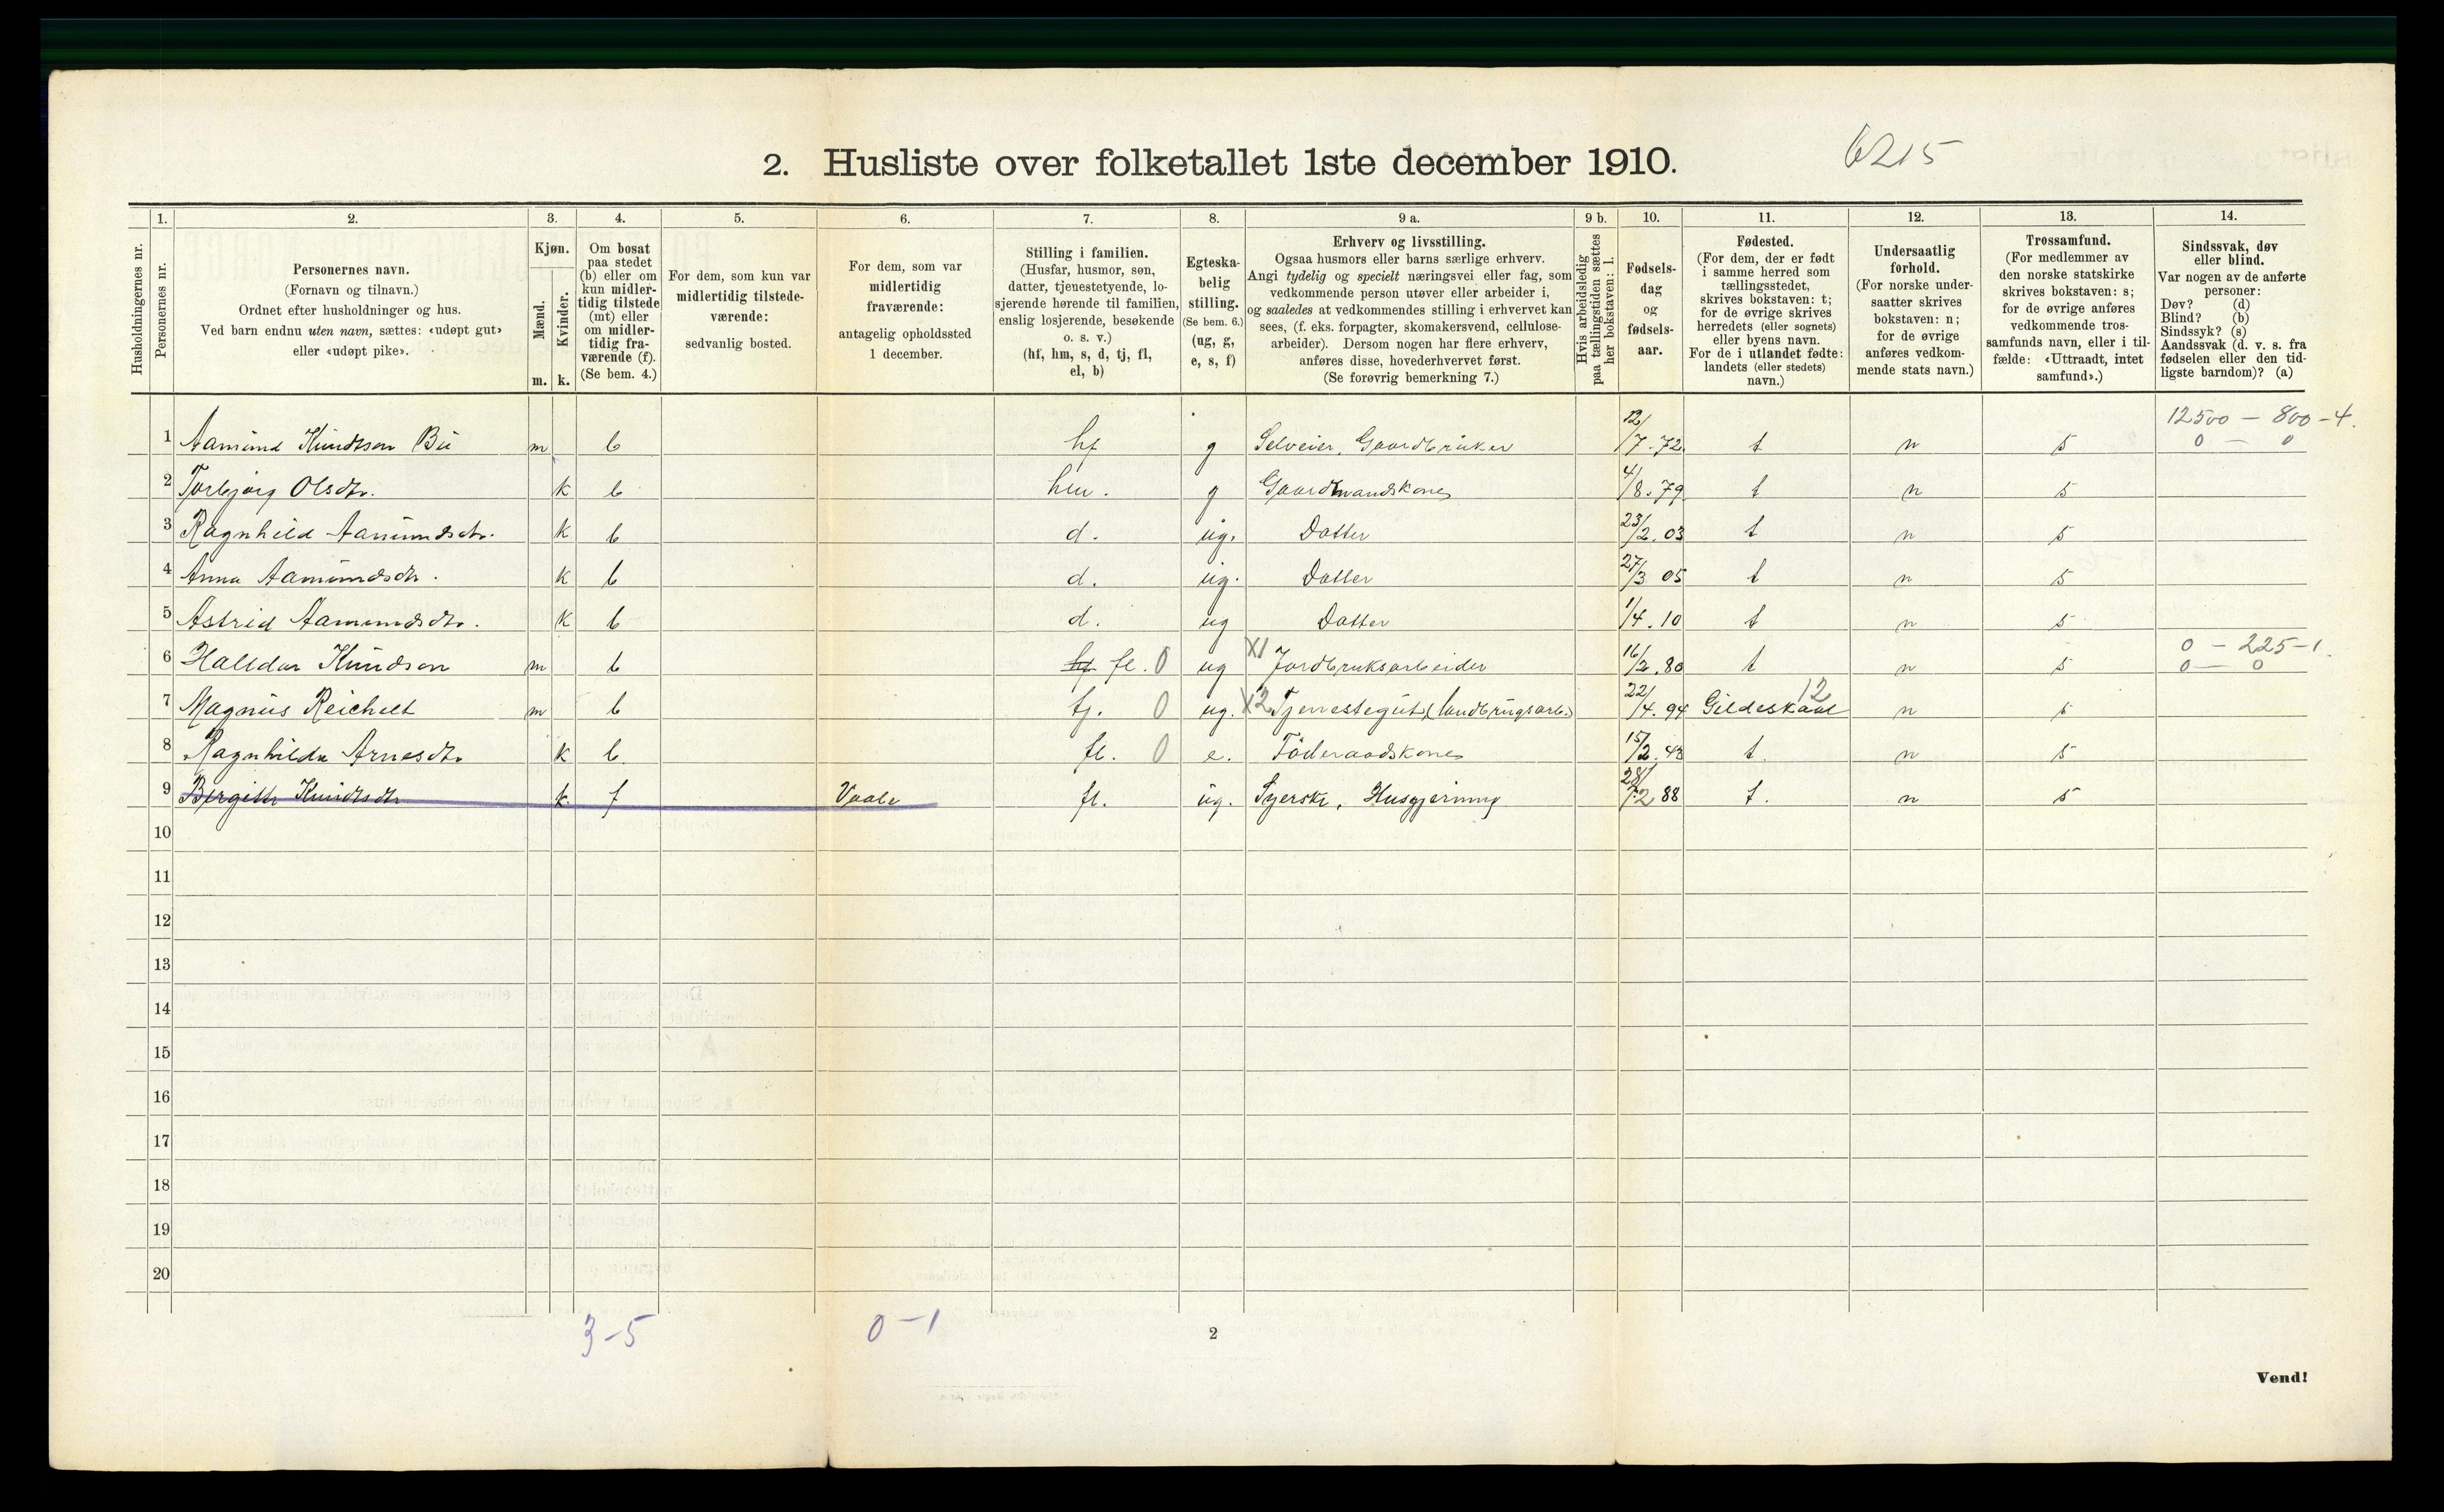 2. Husliste over folketallet 1ste december 1910.
6215
1. 2. 3. 4. 5. 6. 7. 8. 9 a. 9 b. 10. 11. 12. 13. 14.
Husholdningernes nr.
Personernes nr.
Personernes navn.
(Fornavn og tilnavn.)
Ordnet efter husholdninger og hus.
Ved barn endnu uten navn, sættes: «udøpt gut»
eller «udøpt pike».
Kjøn.
Mænd.
Kvinder.
m. k.
Om bosat
paa stedet
(b) eller om
kun midler-
tidig tilstede
(mt) eller
om midler-
tidig fra-
værende (f).
(Se bem. 4.)
For dem, som kun var
midlertidig tilstede-
værende:
sedvanlig bosted.
For dem, som var
midlertidig
fraværende:
antagelig opholdssted
1 december.
Stilling i familien.
(Husfar, husmor, søn,
datter, tjenestetyende, lo-
sjerende hørende til familien,
enslig losjerende, besøkende
o. s. v.)
(hf, hm, s, d, tj, fl,
el, b)
Egteska-
belig
stilling.
(Se bem. 6.)
(ug, g,
e, s, f)
Erhverv og livsstilling.
Ogsaa husmors eller barns særlige erhverv.
Angi tydelig og specielt næringsvei eller fag, som
vedkommende person utøver eller arbeider i,
og saaledes at vedkommendes stilling i erhvervet kan
sees, (f. eks. forpagter, skomakersvend, cellulose-
arbeider). Dersom nogen har flere erhverv,
anføres disse, hovederhvervet først.
(Se forøvrig bemerkning 7.)
Hvis arbeidsledig
paa tællingstiden sættes
her bokstaven: l.
Fødsels-
dag
og
fødsels-
aar.
Fødested.
(For dem, der er født
i samme herred som
tællingsstedet,
skrives bokstaven: t;
for de øvrige skrives
herredets (eller sognets)
eller byens navn.
For de i utlandet fødte:
landets (eller stedets)
navn.)
Undersaatlig
forhold.
(For norske under-
saatter skrives
bokstaven: n;
for de øvrige
anføres vedkom-
mende stats navn.)
Trossamfund.
(For medlemmer av
den norske statskirke
skrives bokstaven: s;
for de øvrige anføres
vedkommende tros-
samfunds navn, eller i til-
fælde: «Uttraadt, intet
samfund».)
Sindssvak, døv
eller blind.
Var nogen av de anførte
personer:
Døv? (d)
Blind? (b)
Sindssyk? (s)
Aandssvak (d. v. s. fra
fødselen eller den tid-
ligste barndom)? (a)
12500 - 800 - 4.
1 Aamund Knudtson Bü m b hf g Selveier, Gaardbruker 12/7-72 t n s 0 - 0
2 Torbjørg Olsdtr. k b hm. g Gaardmandskone 4/8.79 t n s
3 Ragnhild Aamundsdtr. k b d. ug. Datter 23/2.03 t n s
4 Anna Aamundsdtr. k b d. ug. Datter 27/3 05 t n s
5 Astrid Aamundsdtr. k b d. ug Datter 1/4.10 t n s
0 - 225-1.
6 Halldor Knudson m b hf fl. 0 ug X1 Jordbruksarbeider 16/2.80 t n s 0 - 0
7 Magnus Reichelt m b tj. 0 ug. X2 Tjenestegut (landbrugsarb.) 22/4.94 Gildeskaal 12 n s
8 Ragnhilda Arnesdtr k b fl. 0 e. Föderaadskone 15/2.43 t. n s
9 Bergith Knudtsdtr k. f Vaale fl. ug. Syerske, Husgjerning 28/2 88 t. n s
10
11
12
13
14
15
16
17
18
19
20
3-5 0-1
2
Vend!